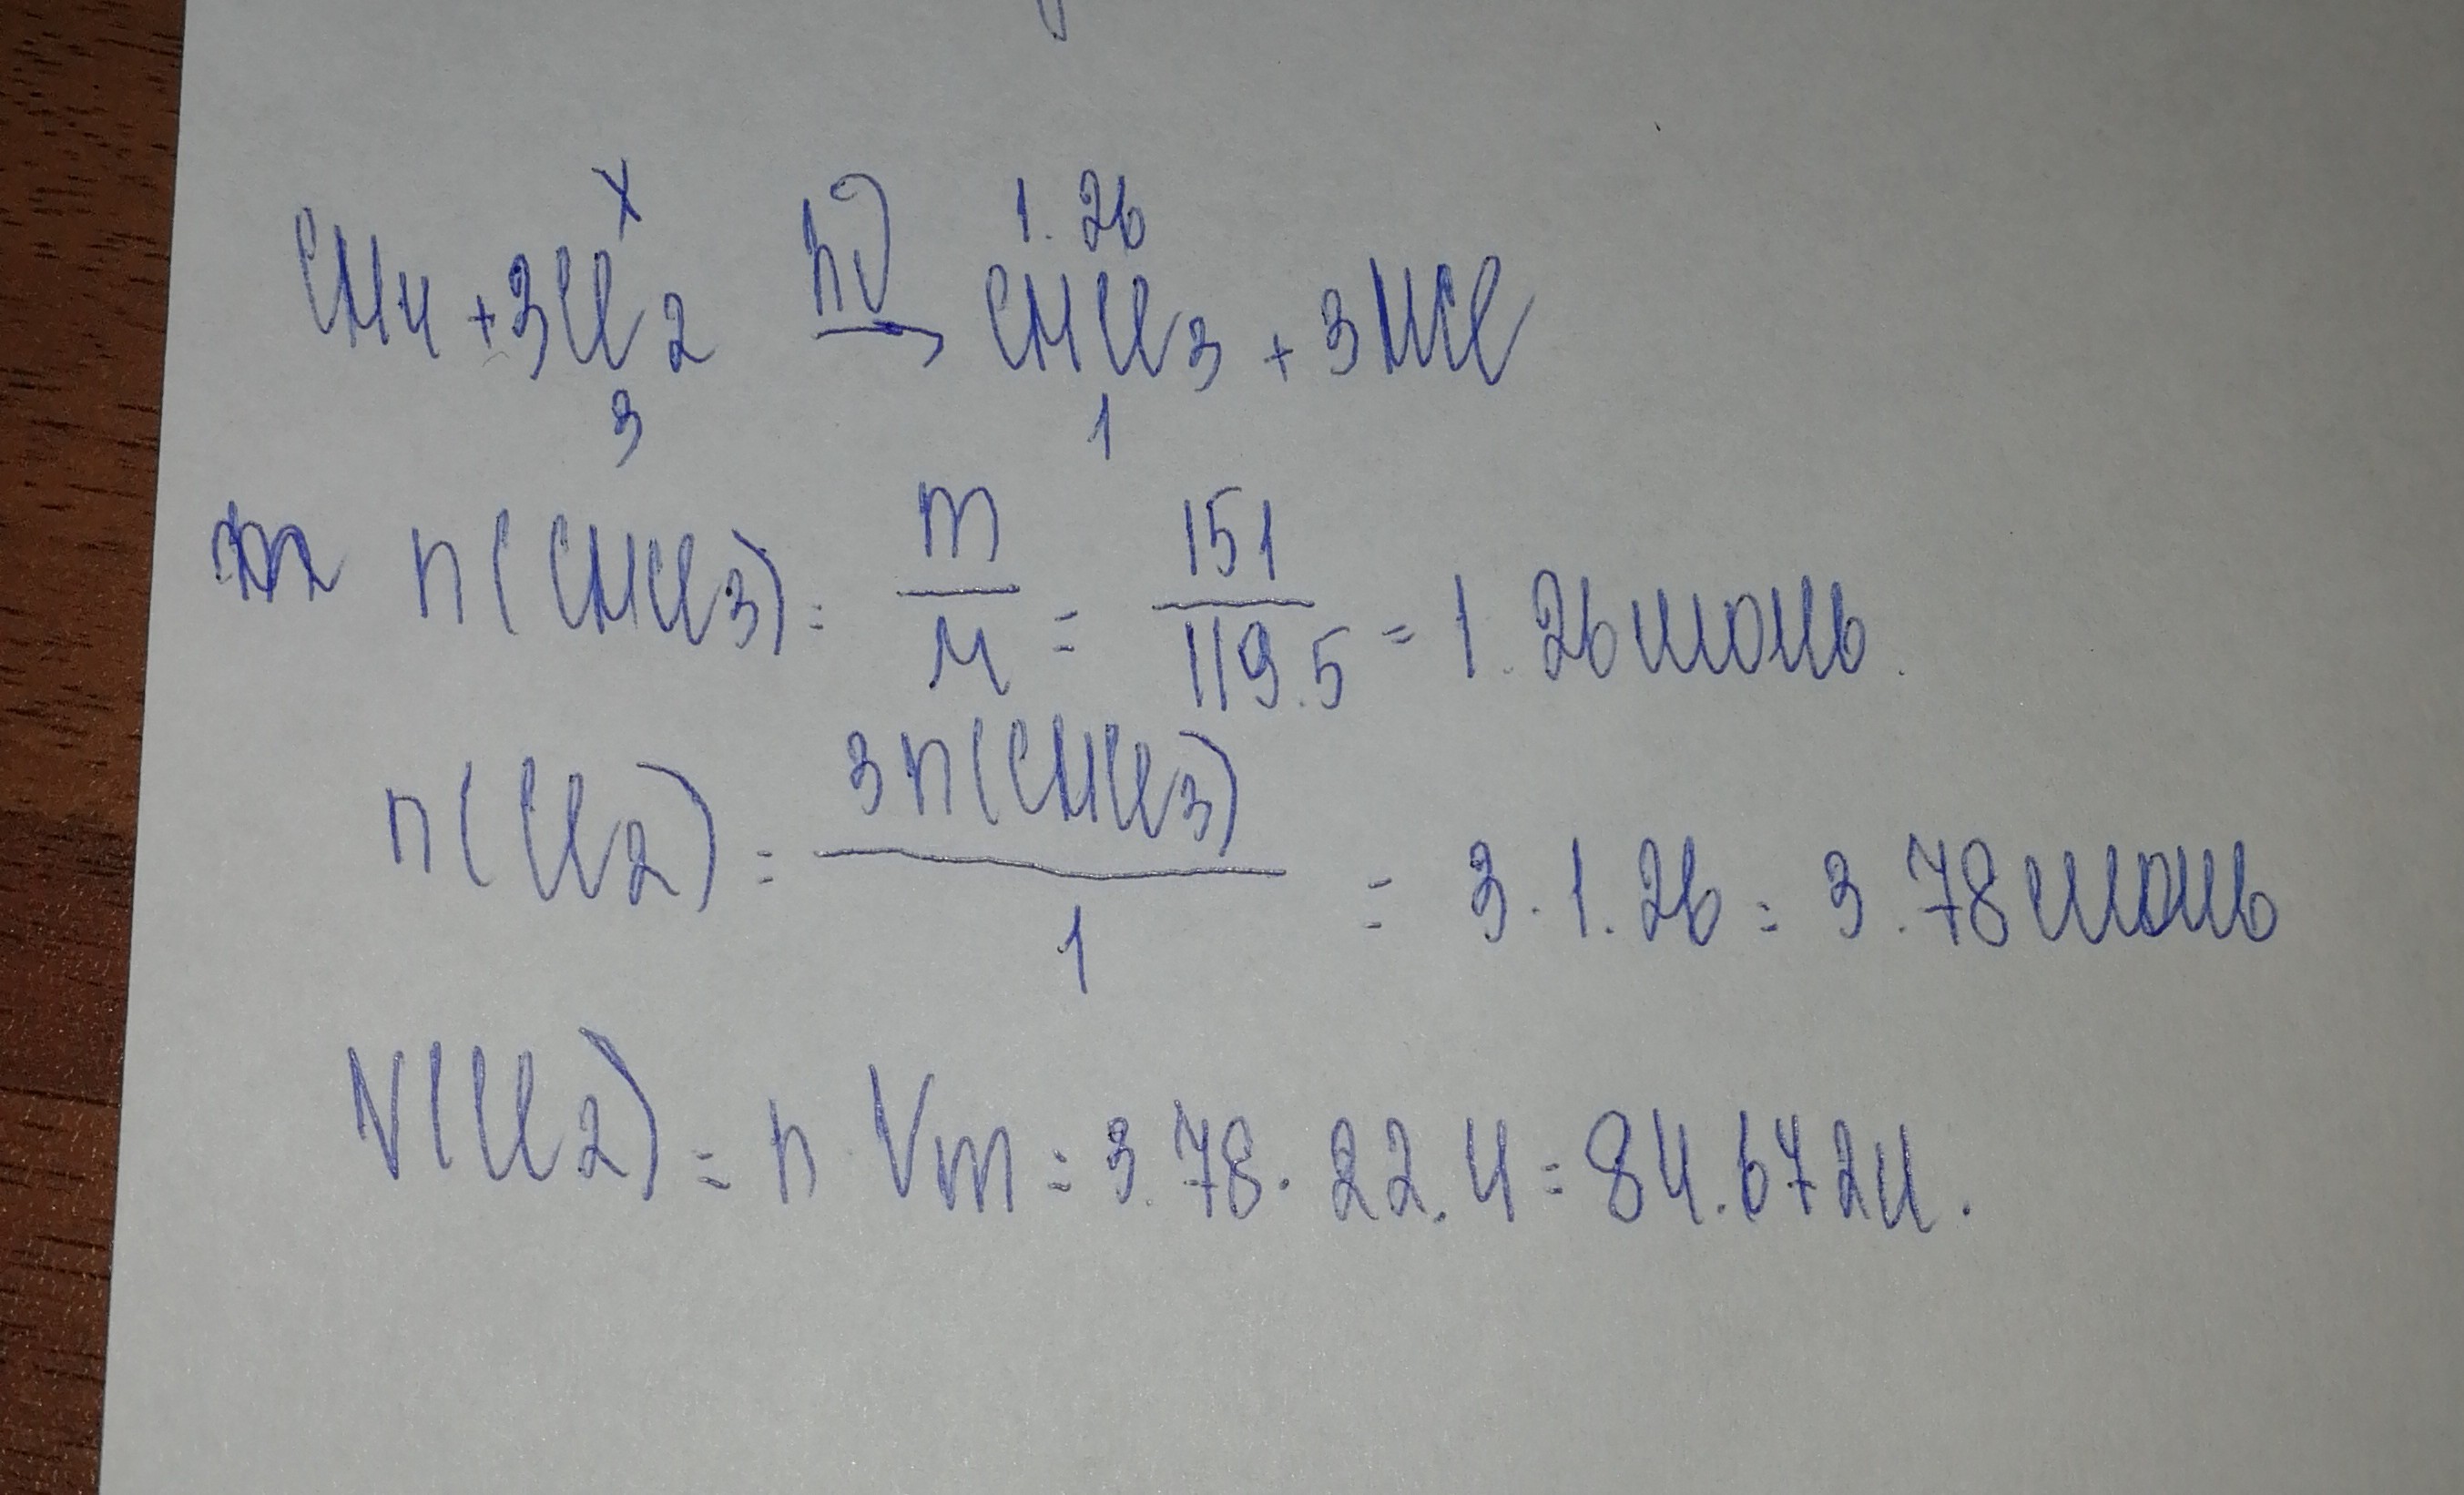 x 1.26
CH4 + 3Cl2 hν → CHCl3 + 3HCl
3 1
n(CHCl3) = m/M = 151/119.5 = 1.26 моль.
n(Cl2) = 3n(CHCl3)/1 = 3 · 1.26 = 3.78 моль
V(Cl2) = n · Vm = 3.78 · 22.4 = 84.672 л.